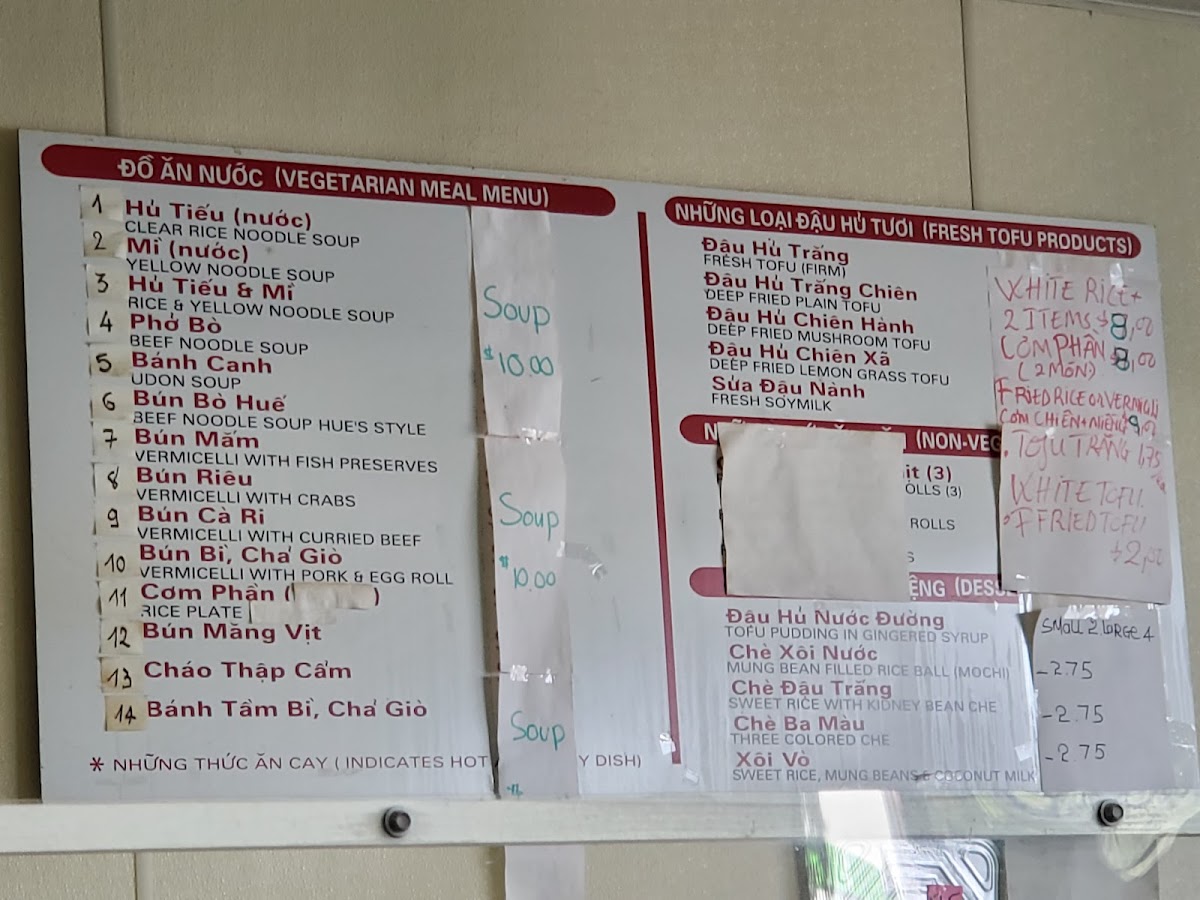 ĐỒ ĂN NƯỚC (VEGETARIAN MEAL MENU)
1 Hủ Tiếu (nước)
CLEAR RICE NOODLE SOUP
2 Mì (nước)
YELLOW NOODLE SOUP
3 Hủ Tiếu & Mì
RICE & YELLOW NOODLE SOUP
4 Phở Bò
BEEF NOODLE SOUP
5 Bánh Canh
UDON SOUP
6 Bún Bò Huế
BEEF NOODLE SOUP HUE'S STYLE
7 Bún Mắm
VERMICELLI WITH FISH PRESERVES
8 Bún Riêu
VERMICELLI WITH CRABS
9 Bún Cà Ri
VERMICELLI WITH CURRIED BEEF
10 Bún Bì, Chả Giò
VERMICELLI WITH PORK & EGG ROLL
11 Cơm Phần ( )
RICE PLATE
12 Bún Măng Vịt
13 Cháo Thập Cẩm
14 Bánh Tầm Bì, Chả Giò
* NHỮNG THỨC ĂN CAY ( INDICATES HOT Y DISH)
Soup
$10.00
Soup
$10.00
Soup
NHỮNG LOẠI ĐẬU HỦ TƯƠI (FRESH TOFU PRODUCTS)
Đậu Hủ Trắng
FRESH TOFU (FIRM)
Đậu Hủ Trắng Chiên
DEEP FRIED PLAIN TOFU
Đậu Hủ Chiên Hành
DEEP FRIED MUSHROOM TOFU
Đậu Hủ Chiên Xã
DEEP FRIED LEMON GRASS TOFU
Sửa Đậu Nành
FRESH SOYMILK
(NON-VEG
(3)
OLLS (3)
ROLLS
S
ỆNG (DESS
Đậu Hủ Nước Đường
TOFU PUDDING IN GINGERED SYRUP
Chè Xôi Nước
MUNG BEAN FILLED RICE BALL (MOCHI)
Chè Đậu Trắng
SWEET RICE WITH KIDNEY BEAN CHE
Chè Ba Màu
THREE COLORED CHE
Xôi Vò
SWEET RICE, MUNG BEANS & COCONUT MILK
WHITE RICE +
2 ITEMS $8,00
CƠM PHẦN $8,00
(2 MÓN)
FRIED RICE OR
CƠM CHIÊN +
TOFU TRẮNG 1,75
WHITE TOFU.
FRIED TOFU
$2,00
SMALL 2 LARGE 4
-2.75
-2.75
-2.75